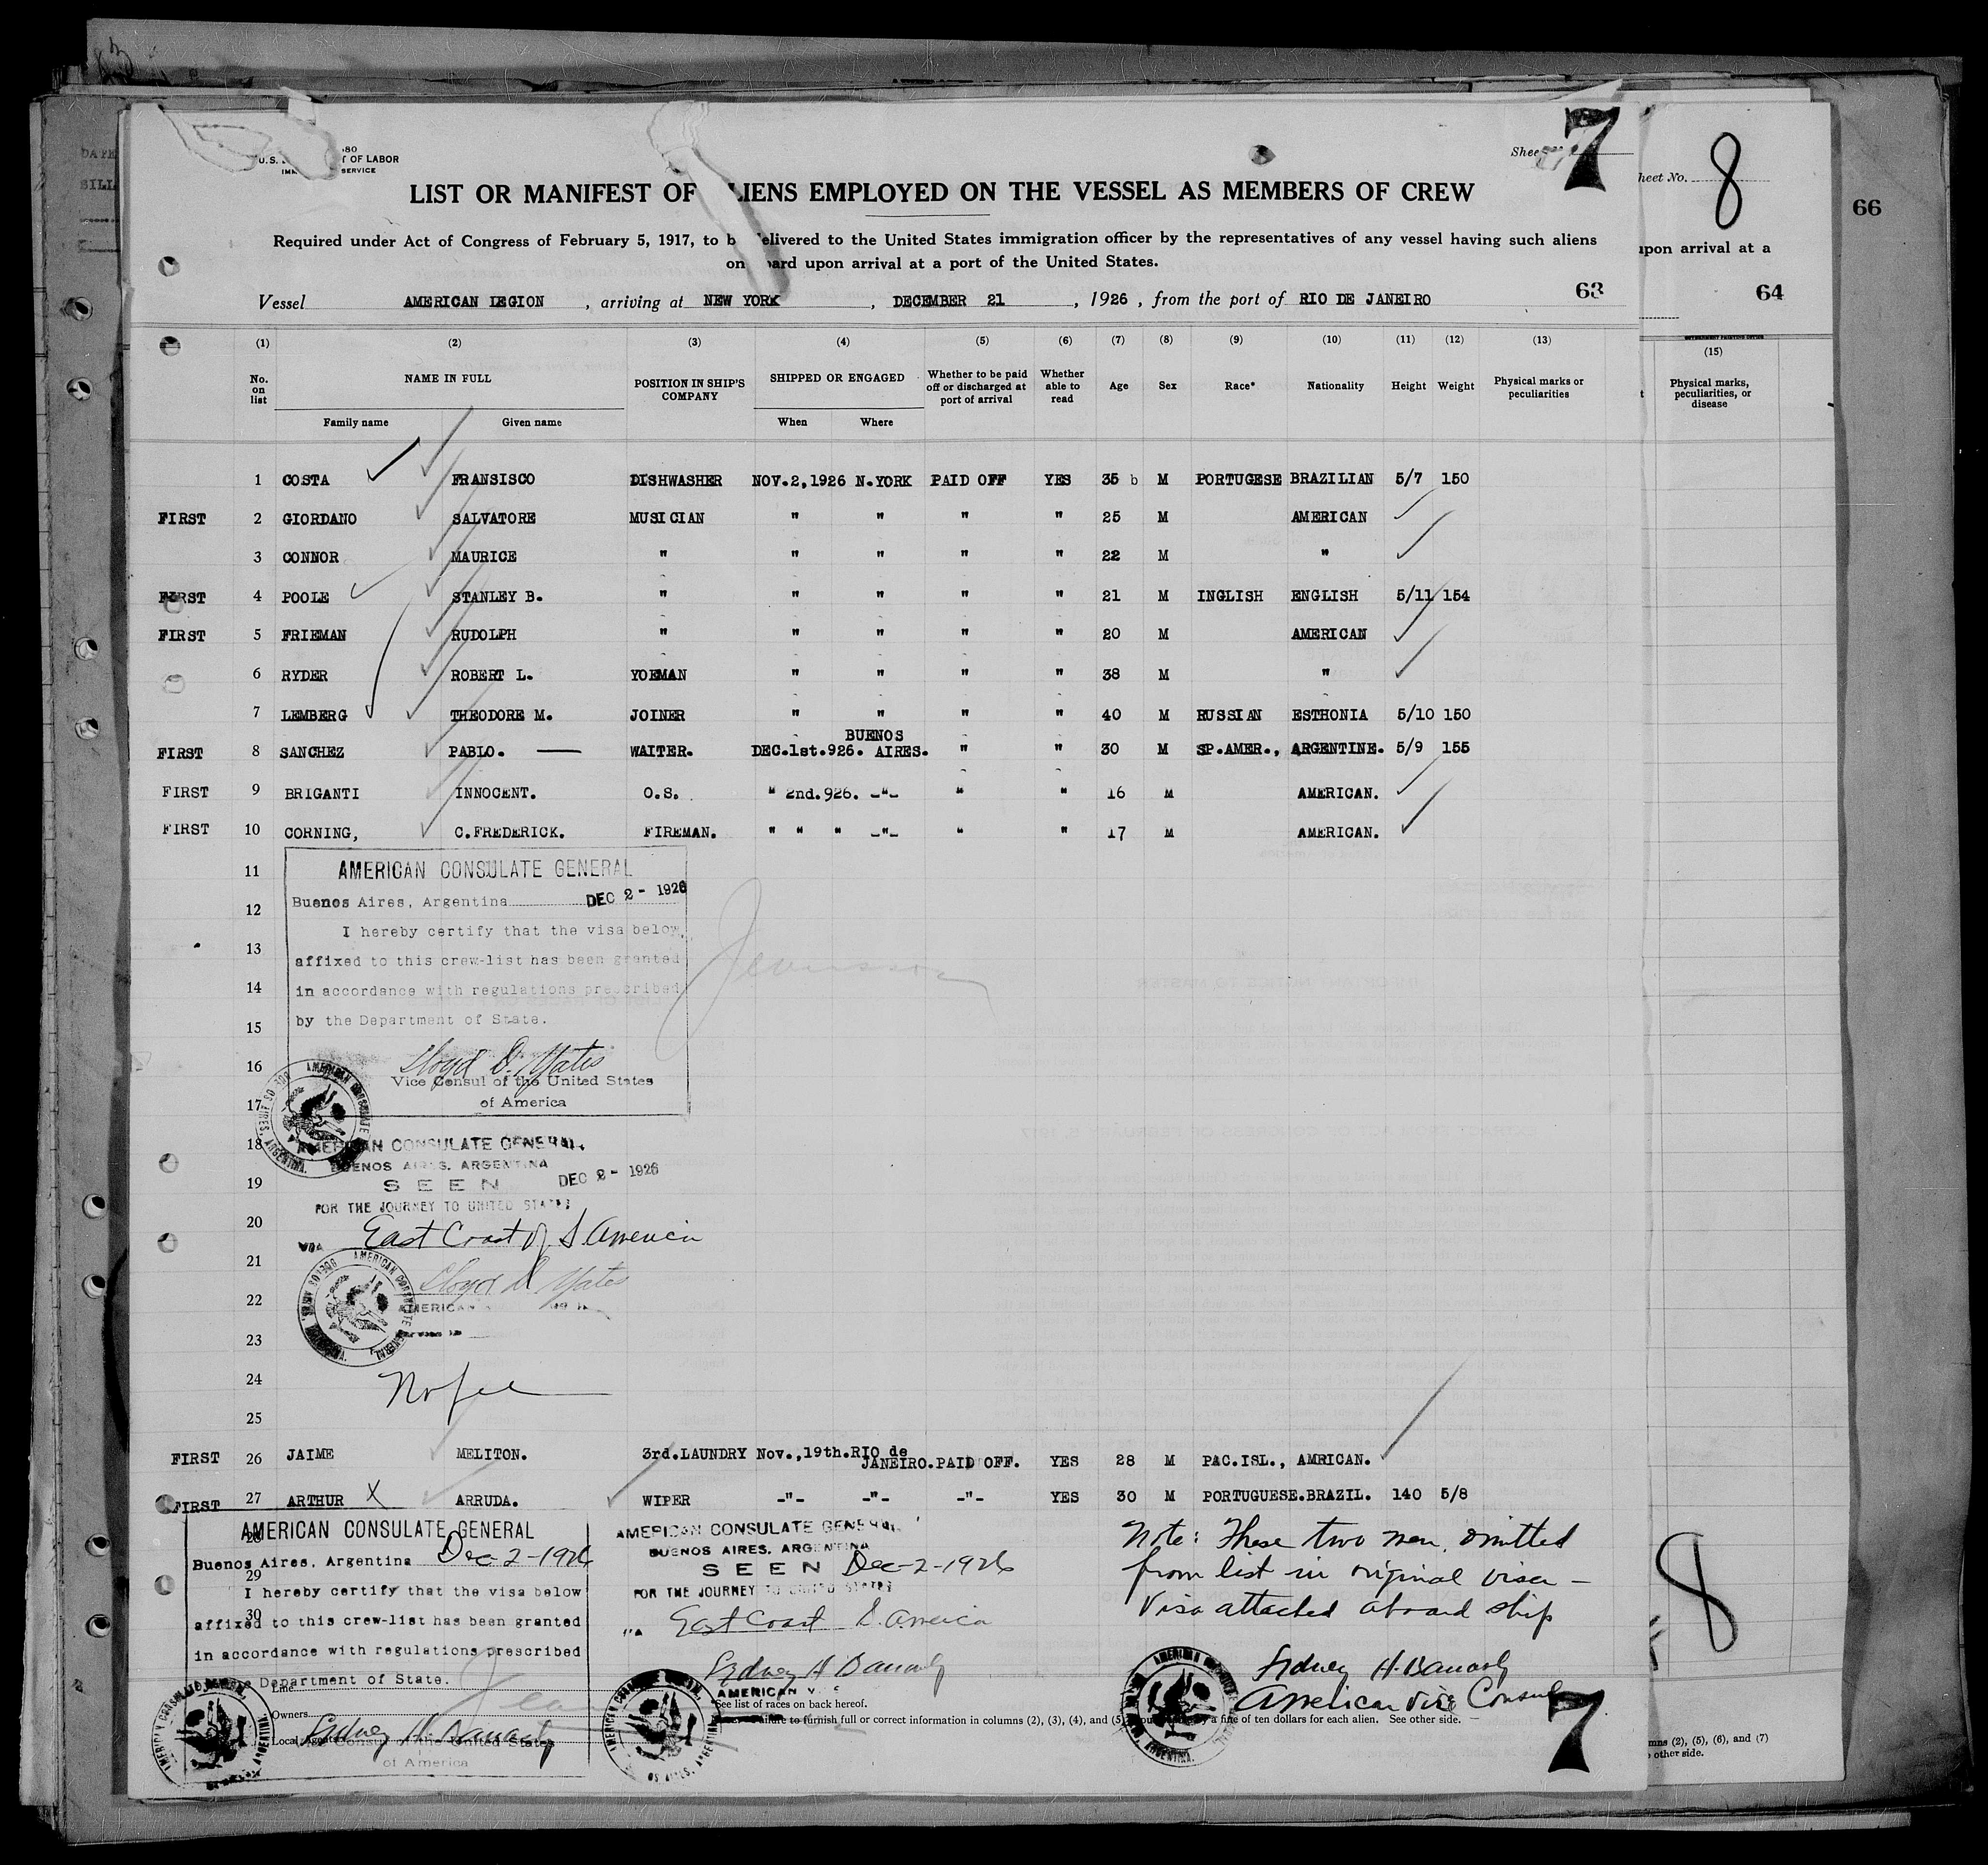 Sheet No. 7
U.S. T OF LABOR
SERVICE
LIST OR MANIFEST OF LIENS EMPLOYED ON THE VESSEL AS MEMBERS OF CREW
Required under Act of Congress of February 5, 1917, to b elivered to the United States immigration officer by the representatives of any vessel having such aliens
on ard upon arrival at a port of the United States.
Vessel AMERICAN LEGION , arriving at NEW YORK , DECEMBER 21 , 1926 , from the port of RIO DE JANEIRO 63
(1) (2) (3) (4) (5) (6) (7) (8) (9) (10) (11) (12) (13)
No. on list NAME IN FULL Family name Given name POSITION IN SHIP'S COMPANY SHIPPED OR ENGAGED When Where Whether to be paid off or discharged at port of arrival Whether able to read Age Sex Race* Nationality Height Weight Physical marks or peculiarities
1 COSTA FRANSISCO DISHWASHER NOV.2,1926 N.YORK PAID OFF YES 35 b M PORTUGESE BRAZILIAN 5/7 150
FIRST 2 GIORDANO SALVATORE MUSICIAN " " " " 25 M AMERICAN
3 CONNOR MAURICE " " " " " 22 M "
FIRST 4 POOLE STANLEY B. " " " " " 21 M INGLISH ENGLISH 5/11 154
FIRST 5 FRIEMAN RUDOLPH " " " " " 20 M AMERICAN
6 RYDER ROBERT L. YOEMAN " " " " 38 M "
7 LEMBERG THEODORE M. JOINER " " " " 40 M RUSSIAN ESTHONIA 5/10 150
FIRST 8 SANCHEZ PABLO. — WAITER. DEC.1st.926. BUENOS AIRES. " " 30 M SP.AMER., ARGENTINE. 5/9 155
FIRST 9 BRIGANTI INNOCENT. O.S. " 2nd.926. -"- " " 16 M AMERICAN.
FIRST 10 CORNING, C.FREDERICK. FIREMAN. " " " -"- " " 17 M AMERICAN.
11
12
13
14
15
16
17
18
19
20
21
22
23
24
25
AMERICAN CONSULATE GENERAL
Buenos Aires, Argentina DEC 2 - 1926
I hereby certify that the visa below
affixed to this crew-list has been granted
in accordance with regulations prescribed
by the Department of State.
Lloyd D. Yates
Vice Consul of the United States
of America
AMERICAN CONSULATE GENERAL
BUENOS AIRES, ARGENTINA
SEEN DEC 2 - 1926
FOR THE JOURNEY TO UNITED STATES
VIA East Coast of S. America
Lloyd D. Yates
AMERICAN
No fee
FIRST 26 JAIME MELITON. 3rd.LAUNDRY Nov.,19th.RIO de JANEIRO.PAID OFF. YES 28 M PAC.ISL., AMRICAN.
FIRST 27 ARTHUR X ARRUDA. WIPER -"- -"- -"- YES 30 M PORTUGUESE.BRAZIL. 140 5/8
28
29
30
AMERICAN CONSULATE GENERAL
Buenos Aires, Argentina Dec-2-1926
I hereby certify that the visa below
affixed to this crew-list has been granted
in accordance with regulations prescribed
Department of State.
Line
Owners
Local Agents
Sidney H. Banash
Consul of the United States
of America
AMERICAN CONSULATE GENERAL
BUENOS AIRES, ARGENTINA
SEEN Dec-2-1926
FOR THE JOURNEY TO UNITED STATES
East Coast S. America
Sidney H Banash
AMERICAN
*See list of races on back hereof.
Failure to furnish full or correct information in columns (2), (3), (4), and (5) a fine of ten dollars for each alien. See other side.
Note: These two men omitted
from list in original visa -
Visa attached aboard ship
Sidney H. Banash
American Vice Consul
7
heet No. 8
66
upon arrival at a
64
(15)
Physical marks, peculiarities, or disease
8
mns (2), (5), (6), and (7)
other side.